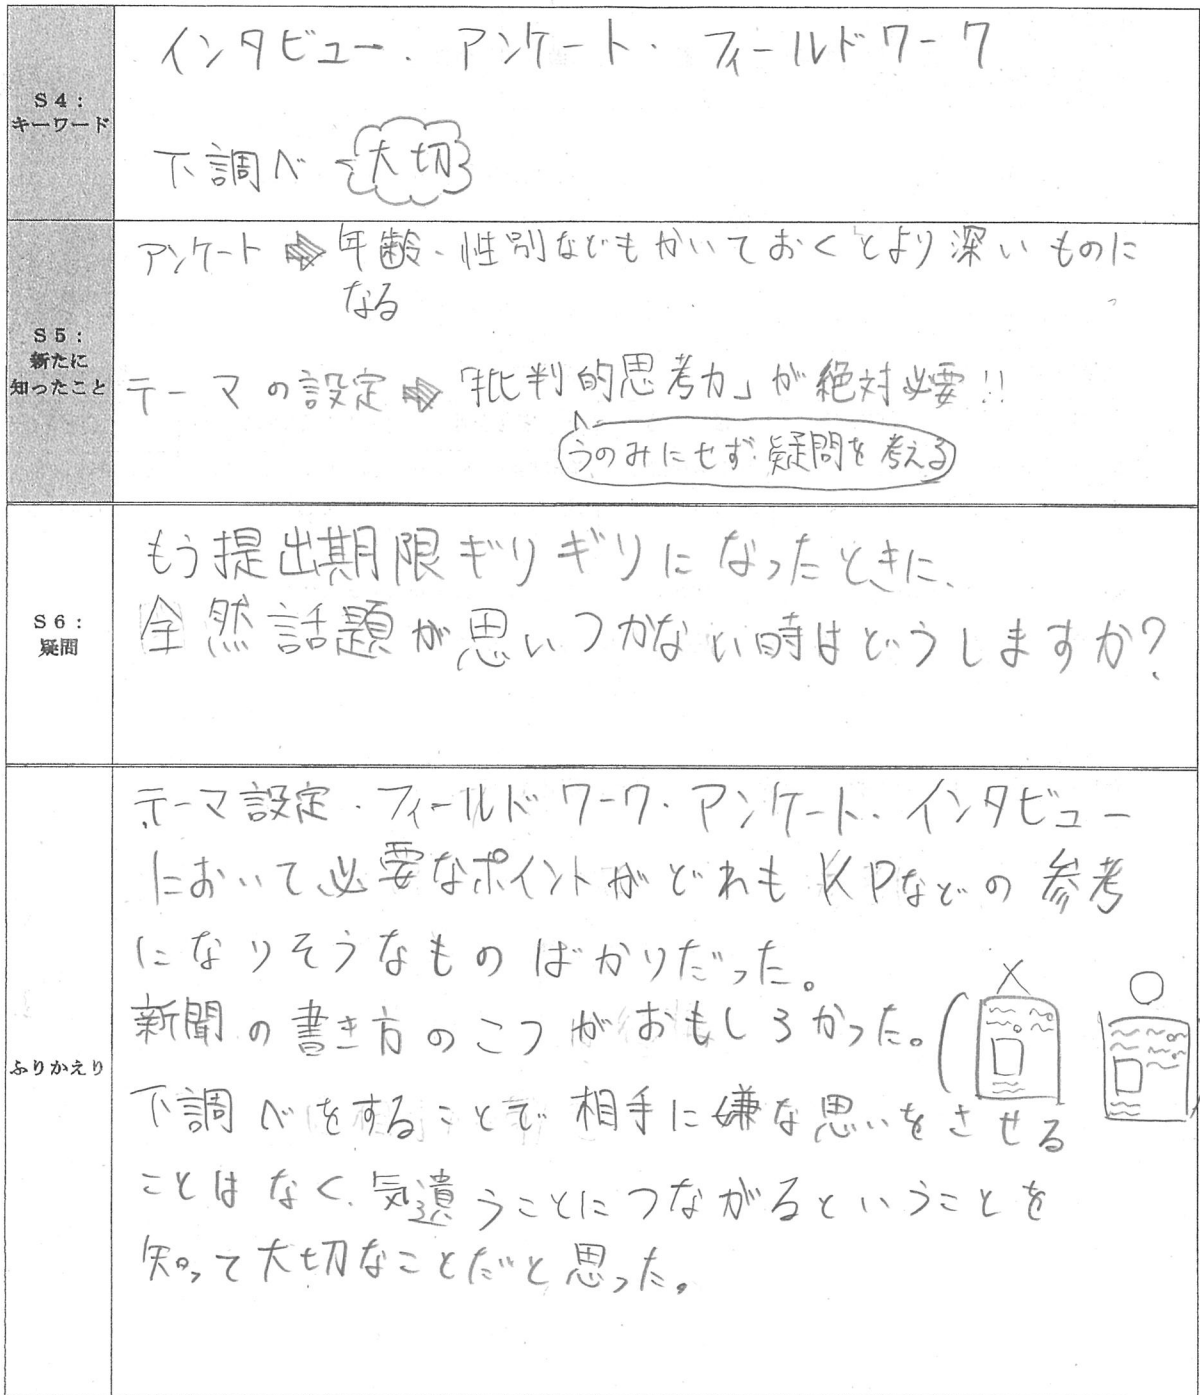 S4:
キーワード
インタビュー・アンケート・フィールドワーク
下調べ 大切
S5:
新たに
知ったこと
アンケート ⇒ 年齢、性別などもかいておくとより深いものに
なる
テーマの設定 ⇒ 「批判的思考力」が絶対必要!!
うのみにせず疑問を考える
S6:
疑問
もう提出期限ギリギリになったときに、
全然話題が思いつかない時はどうしますか?
ふりかえり
テーマ設定・フィールドワーク・アンケート・インタビュー
において必要なポイントがどれもKPなどの参考
になりそうなものばかりだった。
新聞の書き方のこつがおもしろかった。( × ○
下調べをすることで相手に嫌な思いをさせる
ことはなく、気遣うことにつながるということを
知って大切なことだと思った。